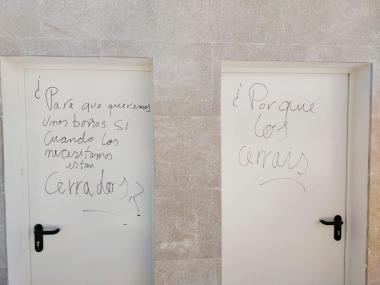 ¿Para que queremos
unos baños si
cuando los
necesitamos
estan
cerrados?
¿Porque
los
cerrais